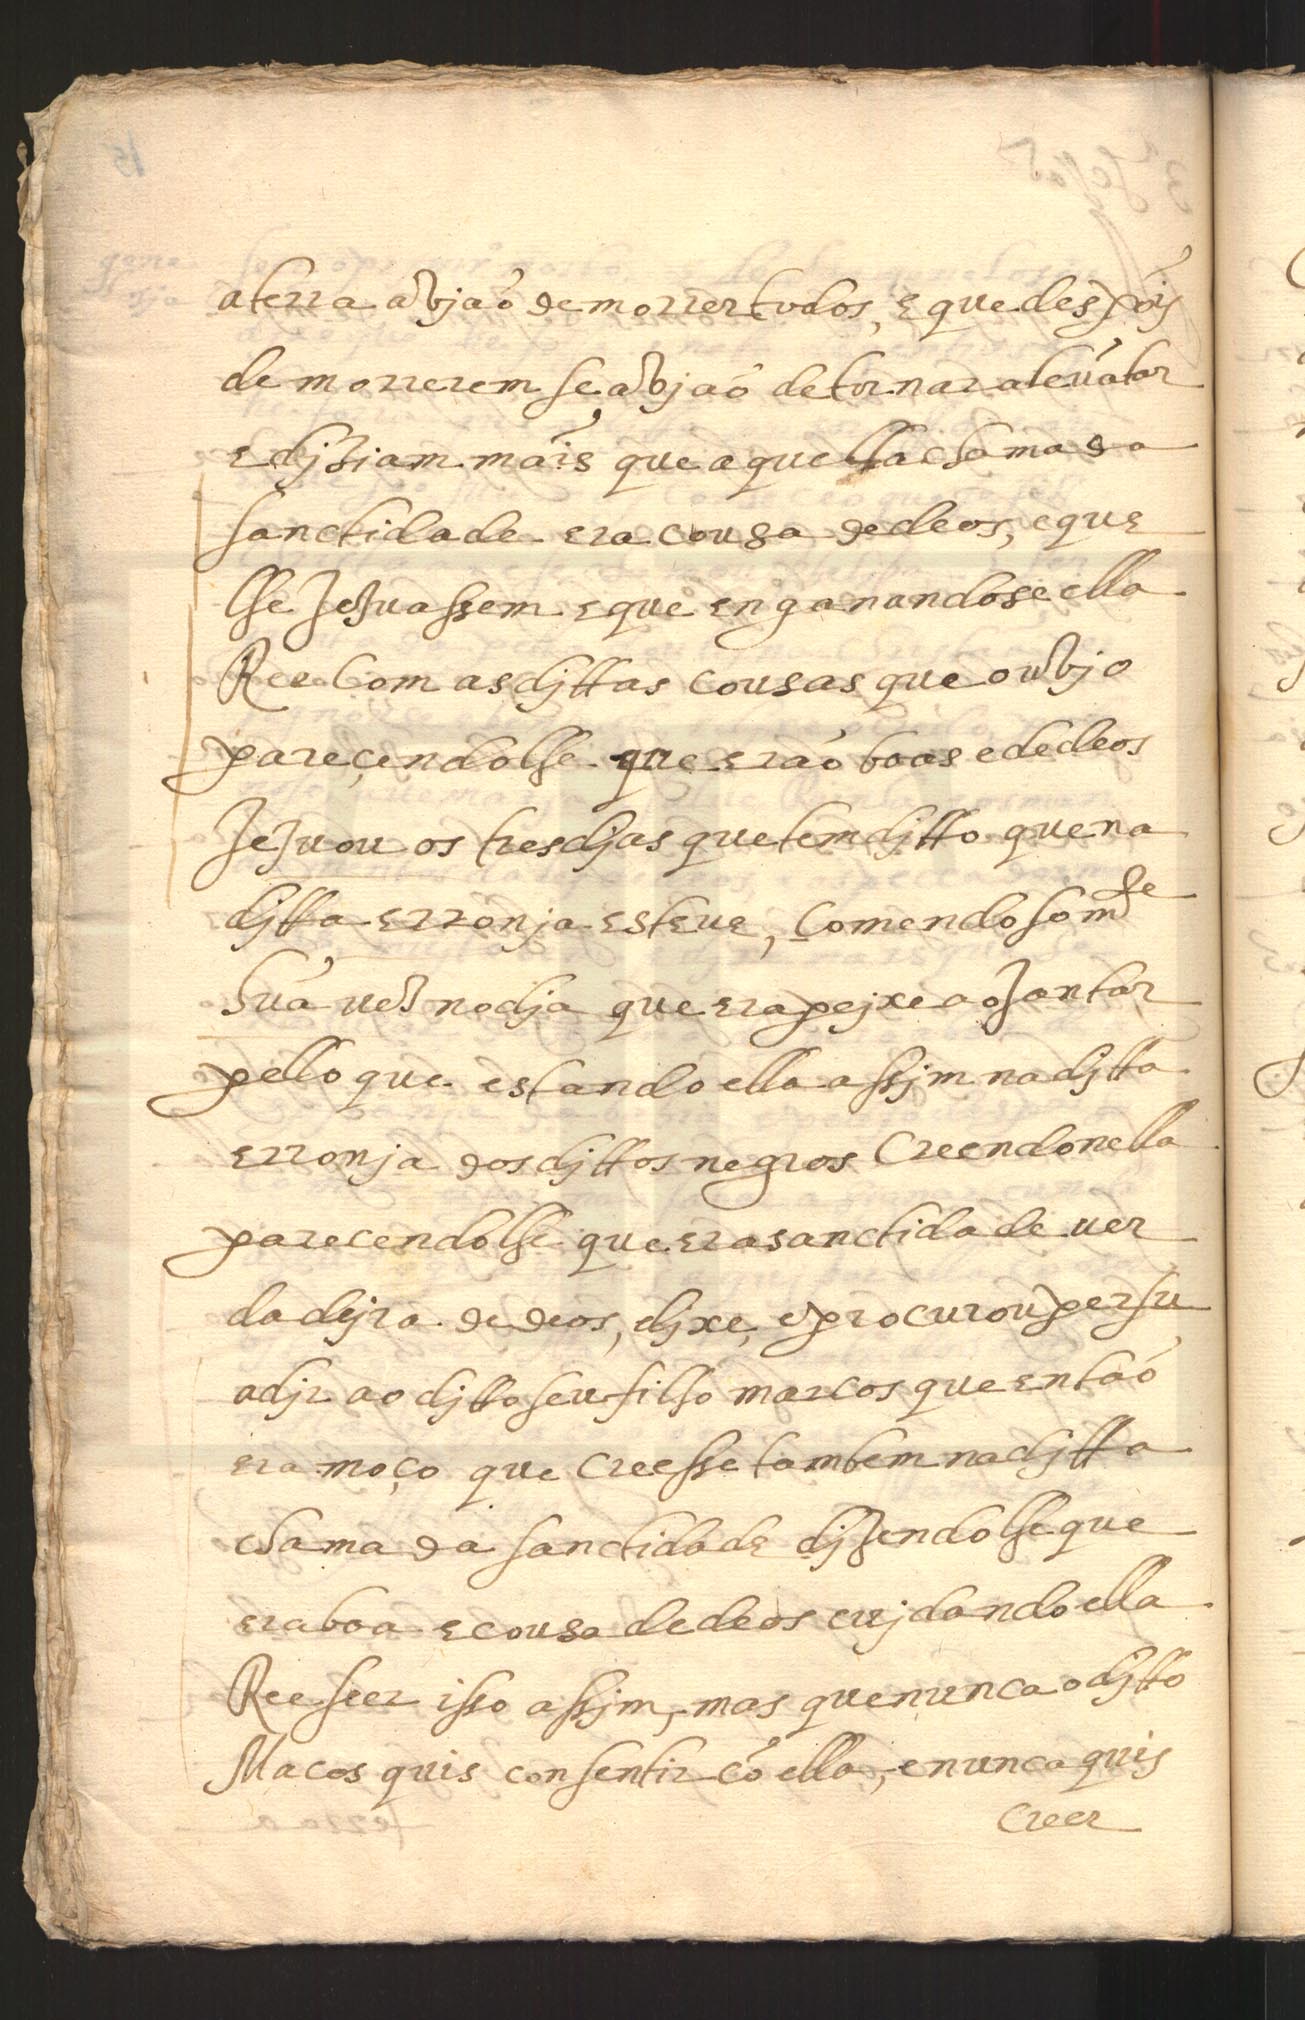 a terra avjaõ de morrer todos, e que despois
de morrerem se avjaõ de tornar aleuátar
e djziam máis que aquella chamada
sanctidade era cousa de deos, e que
lhe Jejuassem e que enganandose ella
Ree Com as djttas cousas que ouvjo
pareçendolhe que eráo boas e de deos
Jejuou os tres djas que tem djtto que na
djtta erronja esteue, Comendo sòmte
húa uez no dja que era pejxe ao Jantar
pello que estando ella assjm na djtta
erronja dos djttos negros Creendo nella
parecendolhe que era sanctidade uer
dadejra de deos, djxe, e procurou persu
adjr ao djtto seu filho marcos que entáo
era moço que Creesse tambem na djtta
chamada sanctidade djzendolhe que
era boa e cousa de deos cujdando ella
Ree seer isso assjm, mas que nunca o djtto
Macos quis consentir có ella, e nunca quis
Creer
15